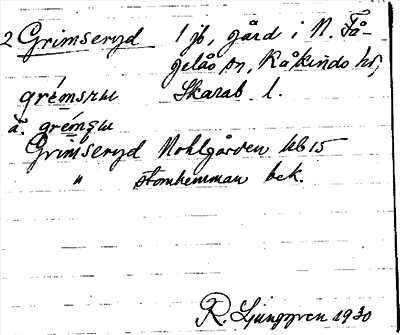 2 Grimseryd 1 jb, gård i N. Få-
gelås sn, Kåkinds hd,
grémsru Skarab. l.
ä. grémsu
Grimseryd Nohlgården Ub 15
" stomhemman bek.
R. Ljunggren 1930